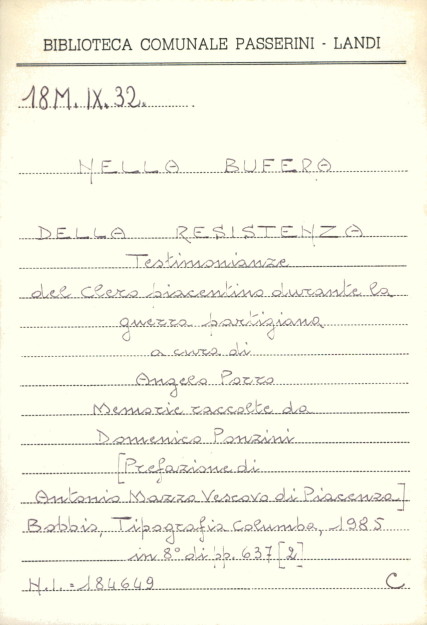 BIBLIOTECA COMUNALE PASSERINI - LANDI
18M.IX.32.
NELLA BUFERA
DELLA RESISTENZA
Testimonianze
del Clero piacentino durante la
guerra partigiana
a cura di
Angelo Porro
Memorie raccolte da
Domenico Ponzini
[Prefazione di
Antonio Mazza Vescovo di Piacenza]
Bobbio, Tipografia Columba, 1985
in 8° di pp. 637 [2]
N.I. = 184649 C